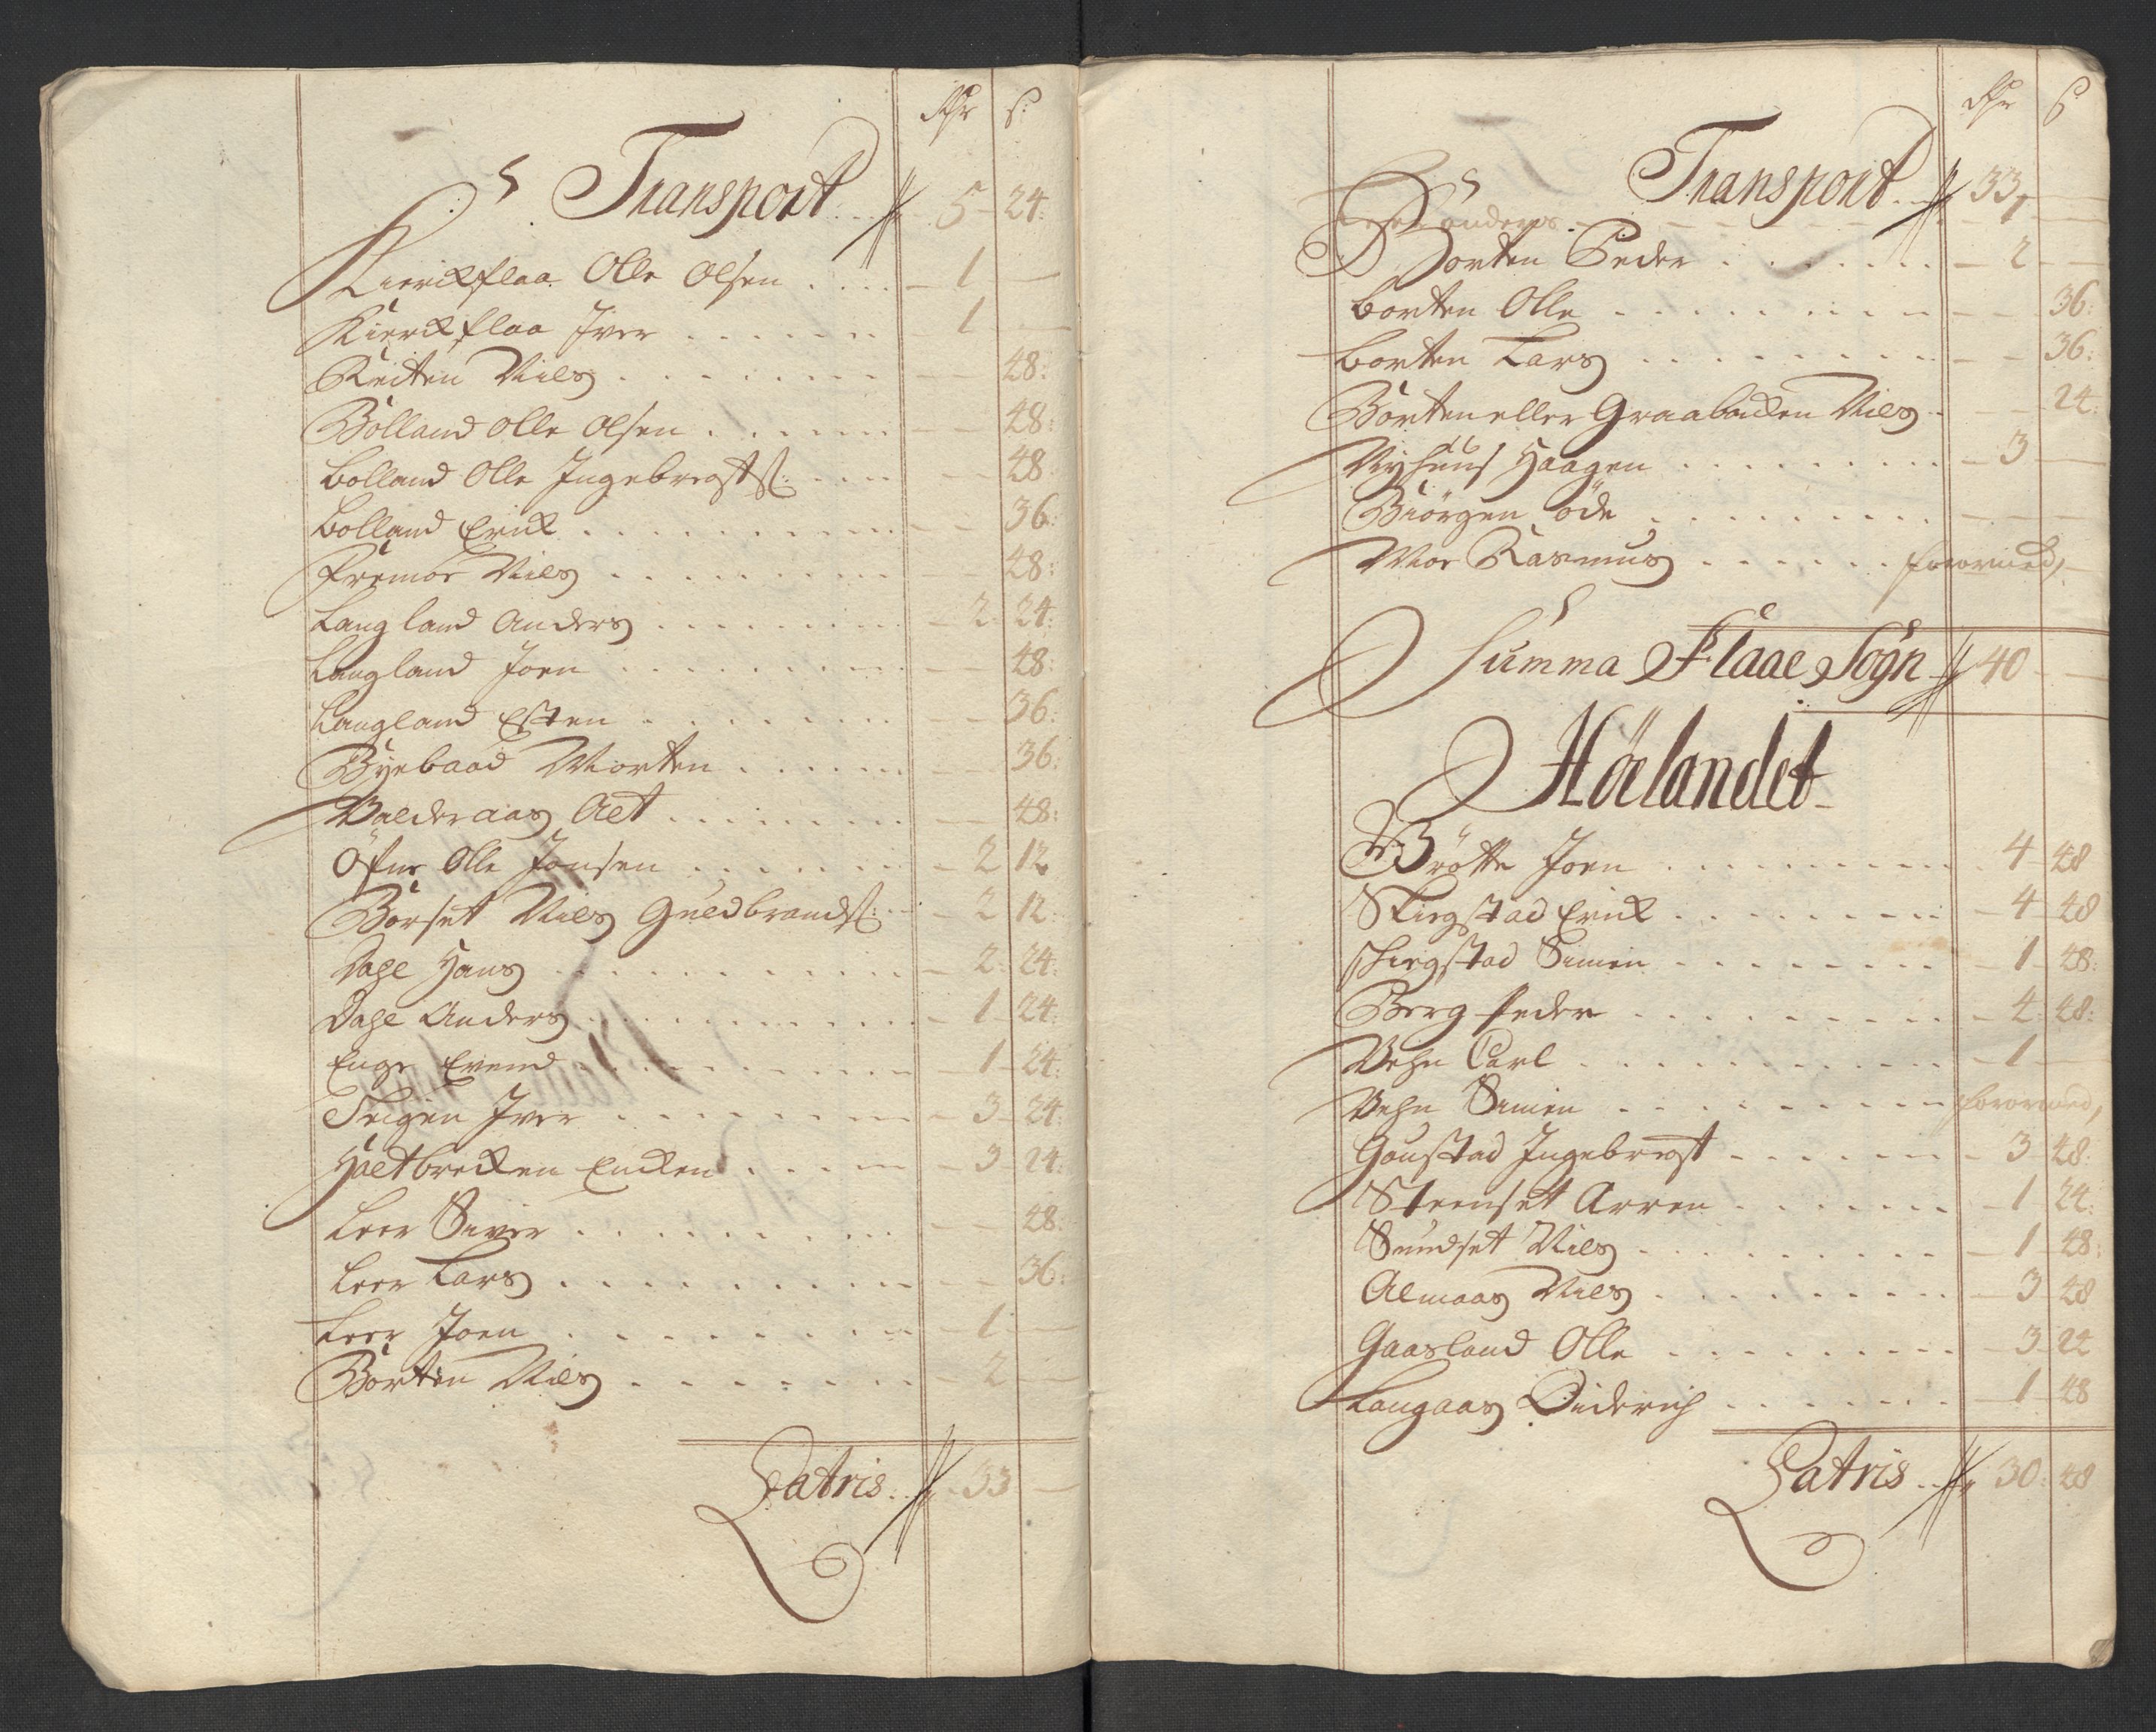 Rdr s:
Transport 5 24:
Kierckflaa Olle Olsen 1
Kierckflaa Iver 1
Reiten Niels 48:
Bolland Olle Olsen 48:
Bolland Olle Ingebregts: 48
Bolland Erick 36:
Fremoe Niels 48:
Langland Anders 2: 24:
Langland Joen 48:
Langland Esten 36:
Byebaad Morten 36:
Valderaas Alt 48:
Öfne Olle Jonsen 2 12
Borset Niels Guldbrands: 2 12:
Dahl Hans 2: 24:
Dahl Anders 1 24:
Enge Evend 1 24:
Teigen Iver 3 24:
Haltbrecken Encken 3 24:
Leer Siver 48:
Leer Lars 36:
Leer Joen 1
Borten Niels 2
Latris 33
Rdr s
Transport 33
Anders 1
Borten Peder 2
Borten Olle 36:
Borten Lars 36:
Borten eller Graabacken Niels 24:
Nyhuus Haagen 3
Biörgen öde
Moe Rasmus forarmed,
Summa Flaae Sogn 40
Höelandet
Brötte Joen 4 48
Skiegstad Erick 4 48
Schiegstad Simen 1 48:
Berg Peder 4: 48:
Vehn Carl 1
Vehn Simen forarmed,
Goustad Ingebregt 3 48:
Steenset Arren 1 24:
Sundset Niels 1 48:
Almaas Niels 3 48
Gaasland Olle 3 24
Langaas Diderich 1 48
Latris 30: 48